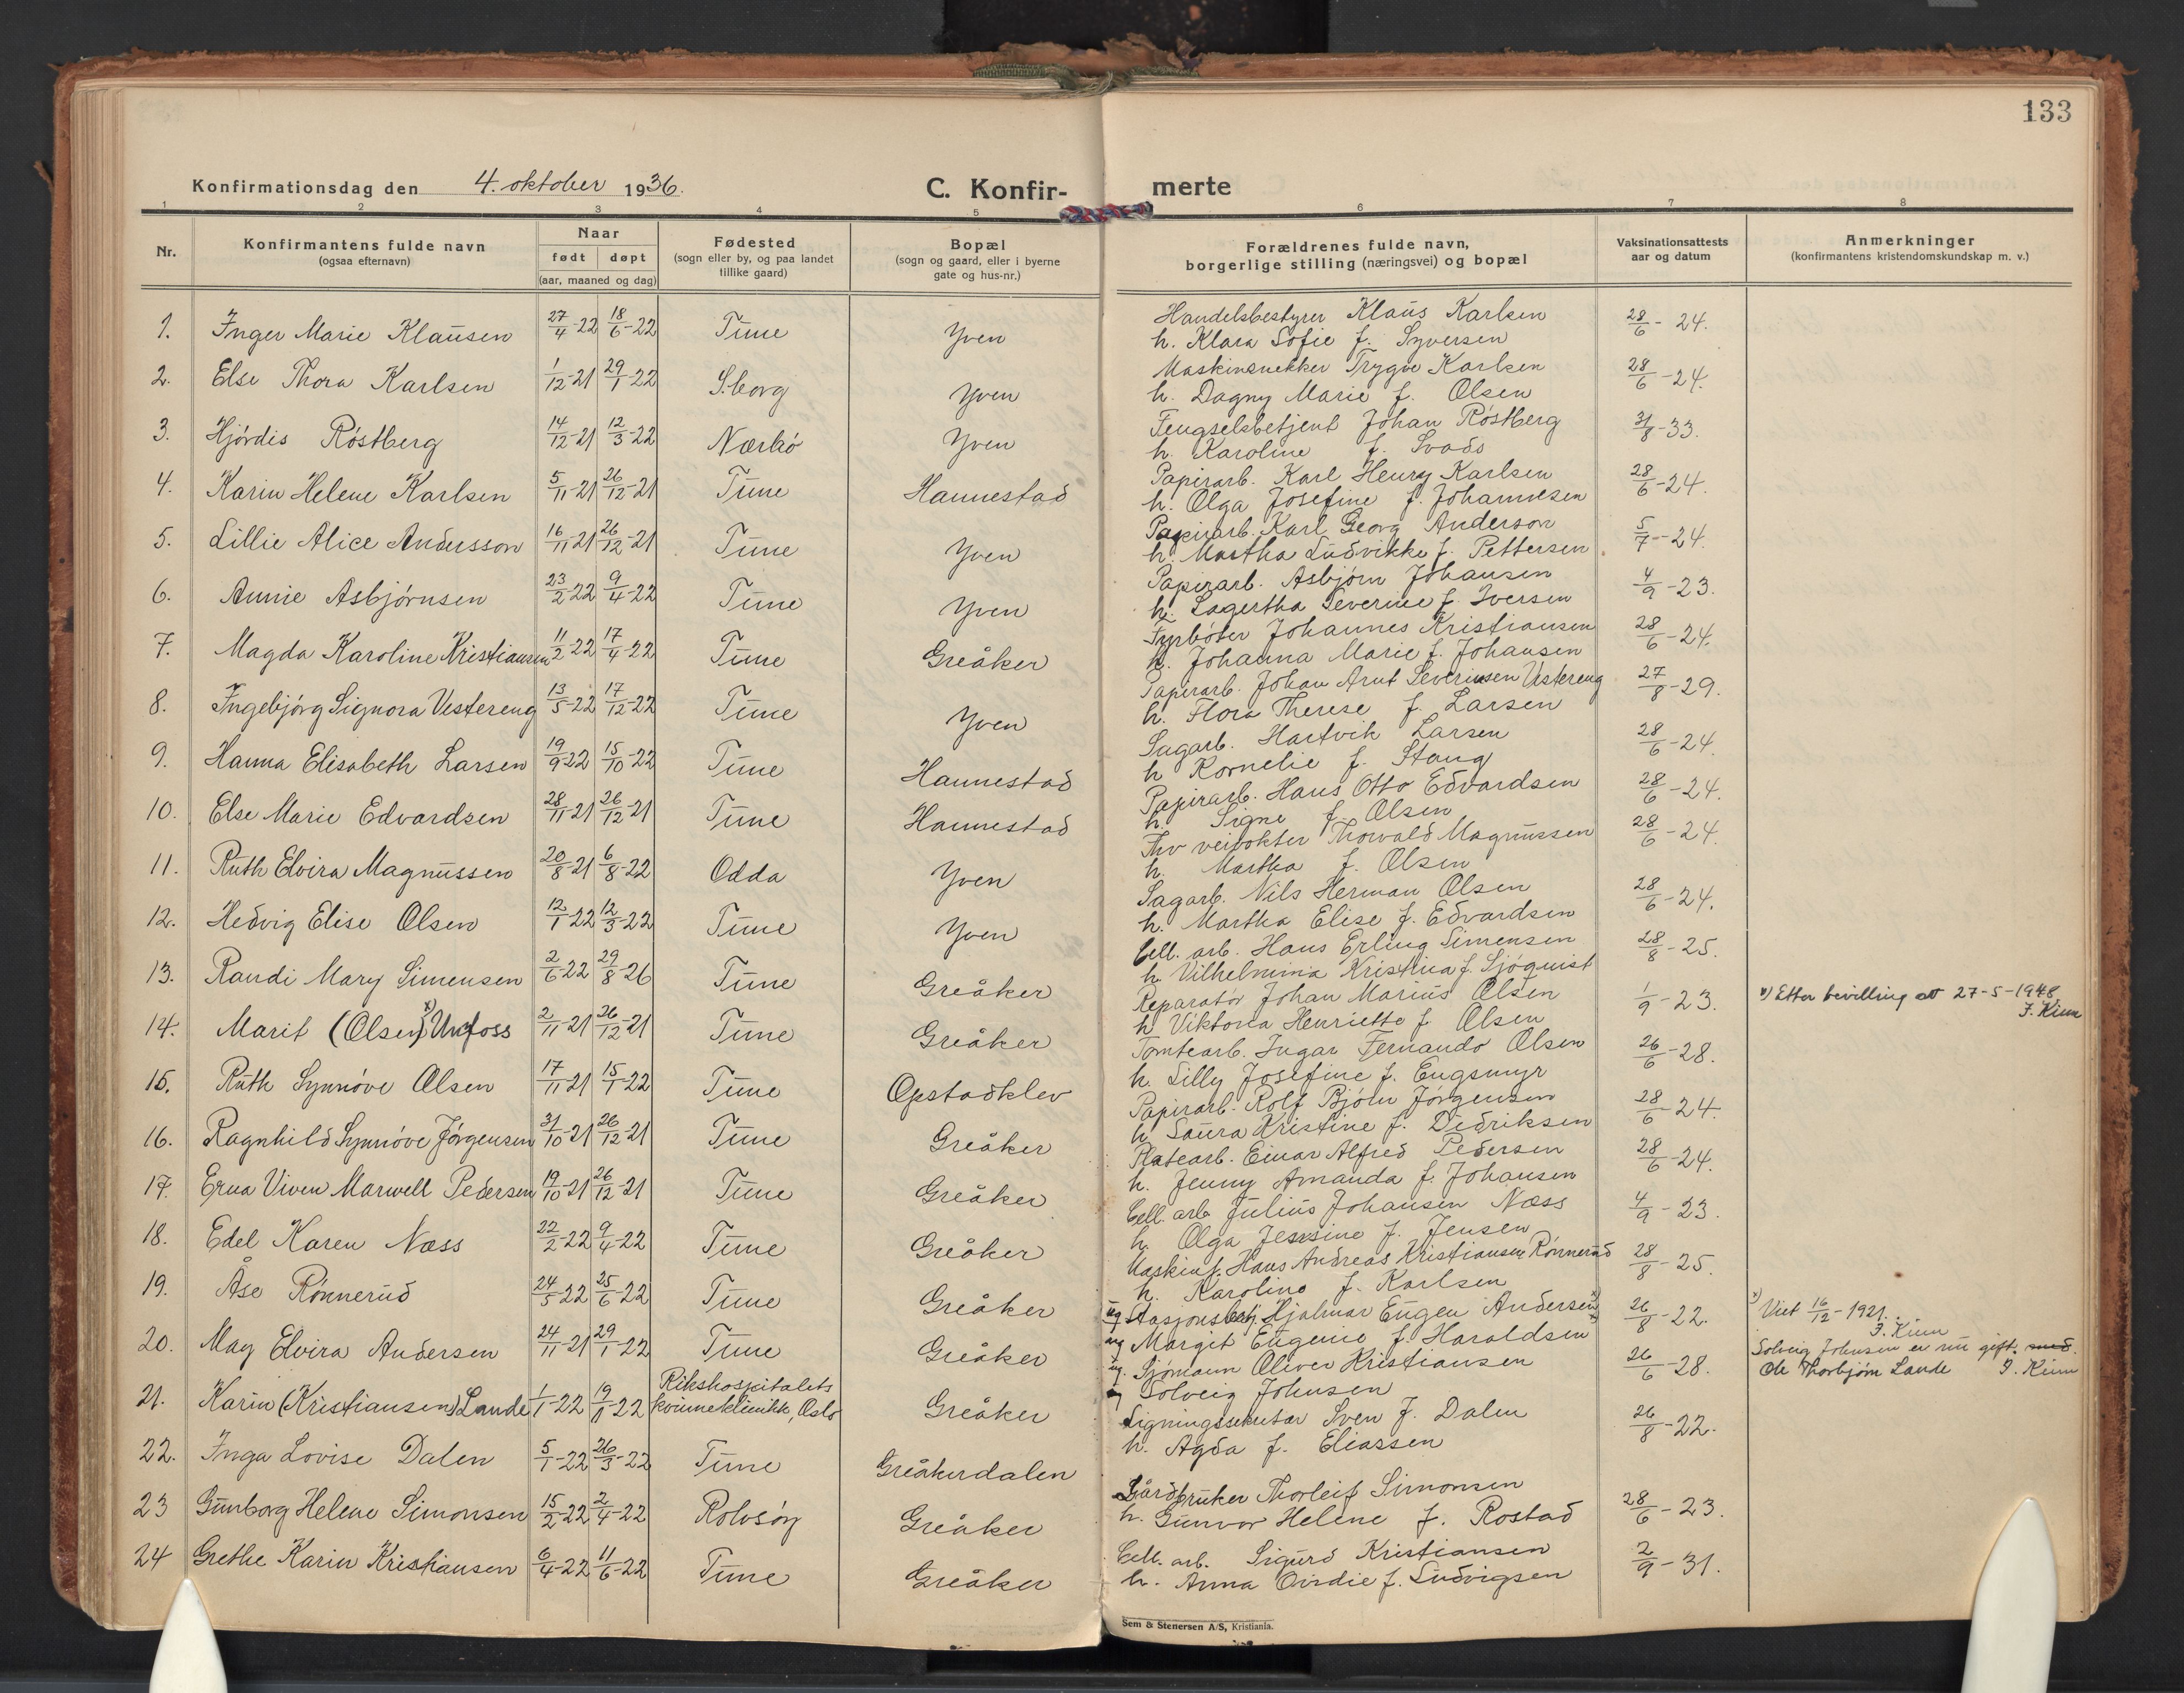 133
Konfirmationsdag den 4. oktober 1936.
C. Konfir- merte
1 2 3 4 5 6 7 8
Nr.
Konfirmantens fulde navn
(ogsaa efternavn)
Naar
født døpt
(aar, maaned og dag)
Fødested
(sogn eller by, og paa landet
tillike gaard)
Bopæl
(sogn og gaard, eller i byerne
gate og hus-nr.)
Forældrenes fulde navn,
borgerlige stilling (næringsvei) og bopæl
Vaksinationsattests
aar og datum
Anmerkninger
(konfirmantens kristendomskundskap m. v.)
1. Inger Marie Klausen 27/4-22 18/6-22 Tune Yven Handelsbestyrer Klaus Karlsen 28/6-24.
h. Klara Sofie f. Syversen
2. Else Thora Karlsen 1/12-21 29/1-22 S.borg Yven Maskinsnekker Trygve Karlsen 28/6-24.
h. Dagny Marie f. Olsen
3. Hjördis Röstberg 14/12-21 12/3-22 Nærbö Yven Fengselsbetjent Johan Röstberg 31/8-33.
h. Karoline f. Svads
4. Karin Helene Karlsen 5/11-21 26/12-21 Tune Hannestad Papirarb. Karl Henry Karlsen 28/6-24.
h. Olga Josefine f. Johannesen
5. Lillie Alice Andersson 16/11-21 26/12-21 Tune Yven Papirarb. Karl Georg Anderson 5/7-24.
h. Martha Ludvikke f. Pettersen
6. Annie Asbjörnsen 23/2-22 9/4-22 Tune Yven Papirarb. Asbjörn Johansen 4/9-23.
h. Lagertha Severine f. Iversen
7. Magda Karoline Kristiansen 11/2-22 17/4-22 Tune Greåker Fyrböter Johannes Kristiansen 28/6-24.
h. Johanna Marie f. Johansen
8. Ingebjörg Signora Vestereng 13/5-22 17/12-22 Tune Yven Papirarb. Johan Arnt Severinsen Vestereng 27/8-29.
h. Flora Therese f. Larsen
9. Hanna Elisabeth Larsen 19/9-22 15/10-22 Tune Hannestad Sagarb. Hartvik Larsen 28/6-24.
h Kornelie f. Stang
10. Else Marie Edvardsen 28/11-21 26/12-21 Tune Hannestad Papirarb. Hans Otto Edvardsen 28/6-24.
h. Signe f. Olsen
11. Ruth Elvira Magnussen 20/8-21 6/8-22 Odda Yven Fhv veivokter Thorvald Magnussen 28/6-24.
h. Martha f. Olsen
12. Hedvig Elise Olsen 12/1-22 12/3-22 Tune Yven Sagarb. Nils Herman Olsen 28/6-24.
h. Martha Elise f. Edvardsen
13. Randi Mary Simensen 2/6-22 29/8-26 Tune Greåker Cell. arb. Hans Erling Simensen 28/8-25.
h. Vilhelmina Kristina f. Sjöquist
14. Marit (Olsen)x) Unfoss 2/11-21 26/12-21 Tune Greåker Reparatör Johan Marius Olsen 1/9-23. x) Etter bevilling av 27-5-1948
h Viktoria Henriette f. Olsen F. Kinn
15. Ruth Synnöve Olsen 17/11-21 15/1-22 Tune Opstadklev Tomtearb. Ingar Fernando Olsen 26/6-28.
h. Lilly Josefine f. Engsmyr
16. Ragnhild Synnöve Jörgensen 31/10-21 26/12-21 Tune Greåker Papirarb. Rolf Björn Jörgensen 28/6-24.
h Laura Kristine f. Didriksen
17. Erna Viven Marwell Pedersen 19/10-21 26/12-21 Tune Greåker Platearb. Einar Alfred Pedersen 28/6-24.
h. Jenny Amanda f. Johansen
18. Edel Karen Næss 22/2-22 9/4-22 Tune Greåker Cell. arb Julius Johansen Næss 4/9-23.
h. Olga Jessine f. Jensen
19. Åse Rönnerud 24/5-22 25/6-22 Tune Greåker Maskinf. Hans Andreas Kristiansen Rönnerud 28/8-25.
h. Karoline f. Karlsen
20. May Elvira Andersen 24/11-21 29/1-22 Tune Greåker ug Stasjonsbetj. Hjalmar Eugen Andersen x) 26/8-22. x) Viet 16/12-1921.
ug Margit Eugenie f. Haraldsen F. Kinn
21. Karin (Kristiansen) Lande 1/1-22 19/1-22 Rikshospitalets kvinneklinikk, Oslo Greåker ug. Sjömann Oliver Kristiansen 26/6-28. Solveig Johnsen er nu gift med.
ug Solveig Johnsen Ole Thorbjörn Lande F. Kinn
22. Inga Lovise Dalen 5/1-22 26/3-22 Tune Greåkerdalen Ligningssekretær Sven J. Dalen 26/8-22.
h. Agda f. Eliassen
23 Gunborg Helene Simonsen 15/2-22 2/4-22 Rolvsöy Greåker Gårdbruker Thorleif Simonsen 28/6-23.
h. Gunvor Helene f. Rostad
24 Grethe Karin Kristiansen 6/4-22 11/6-22 Tune Greåker Cell. arb. Sigurd Kristiansen 2/9-31.
h. Anna Ovidie f. Ludvigsen
Sem & Stenersen A/S, Kristiania.